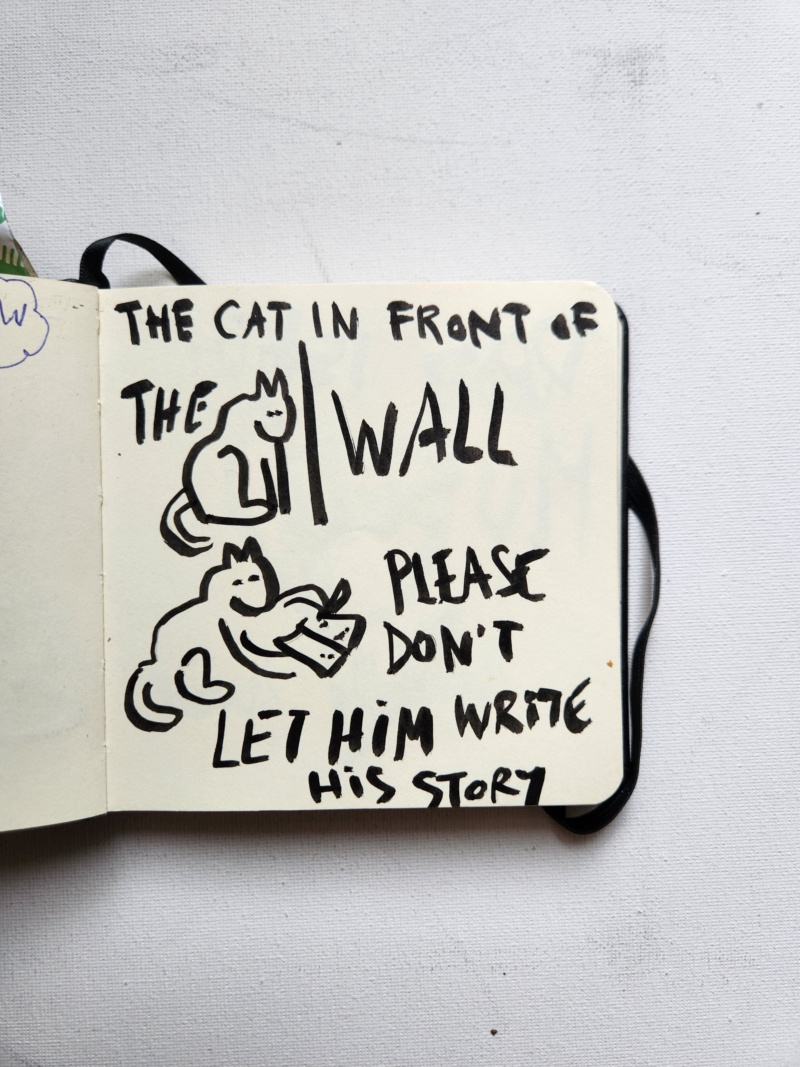 THE CAT IN FRONT OF
THE WALL
PLEASE
DON'T
LET HiM WRiTE
HiS STORY